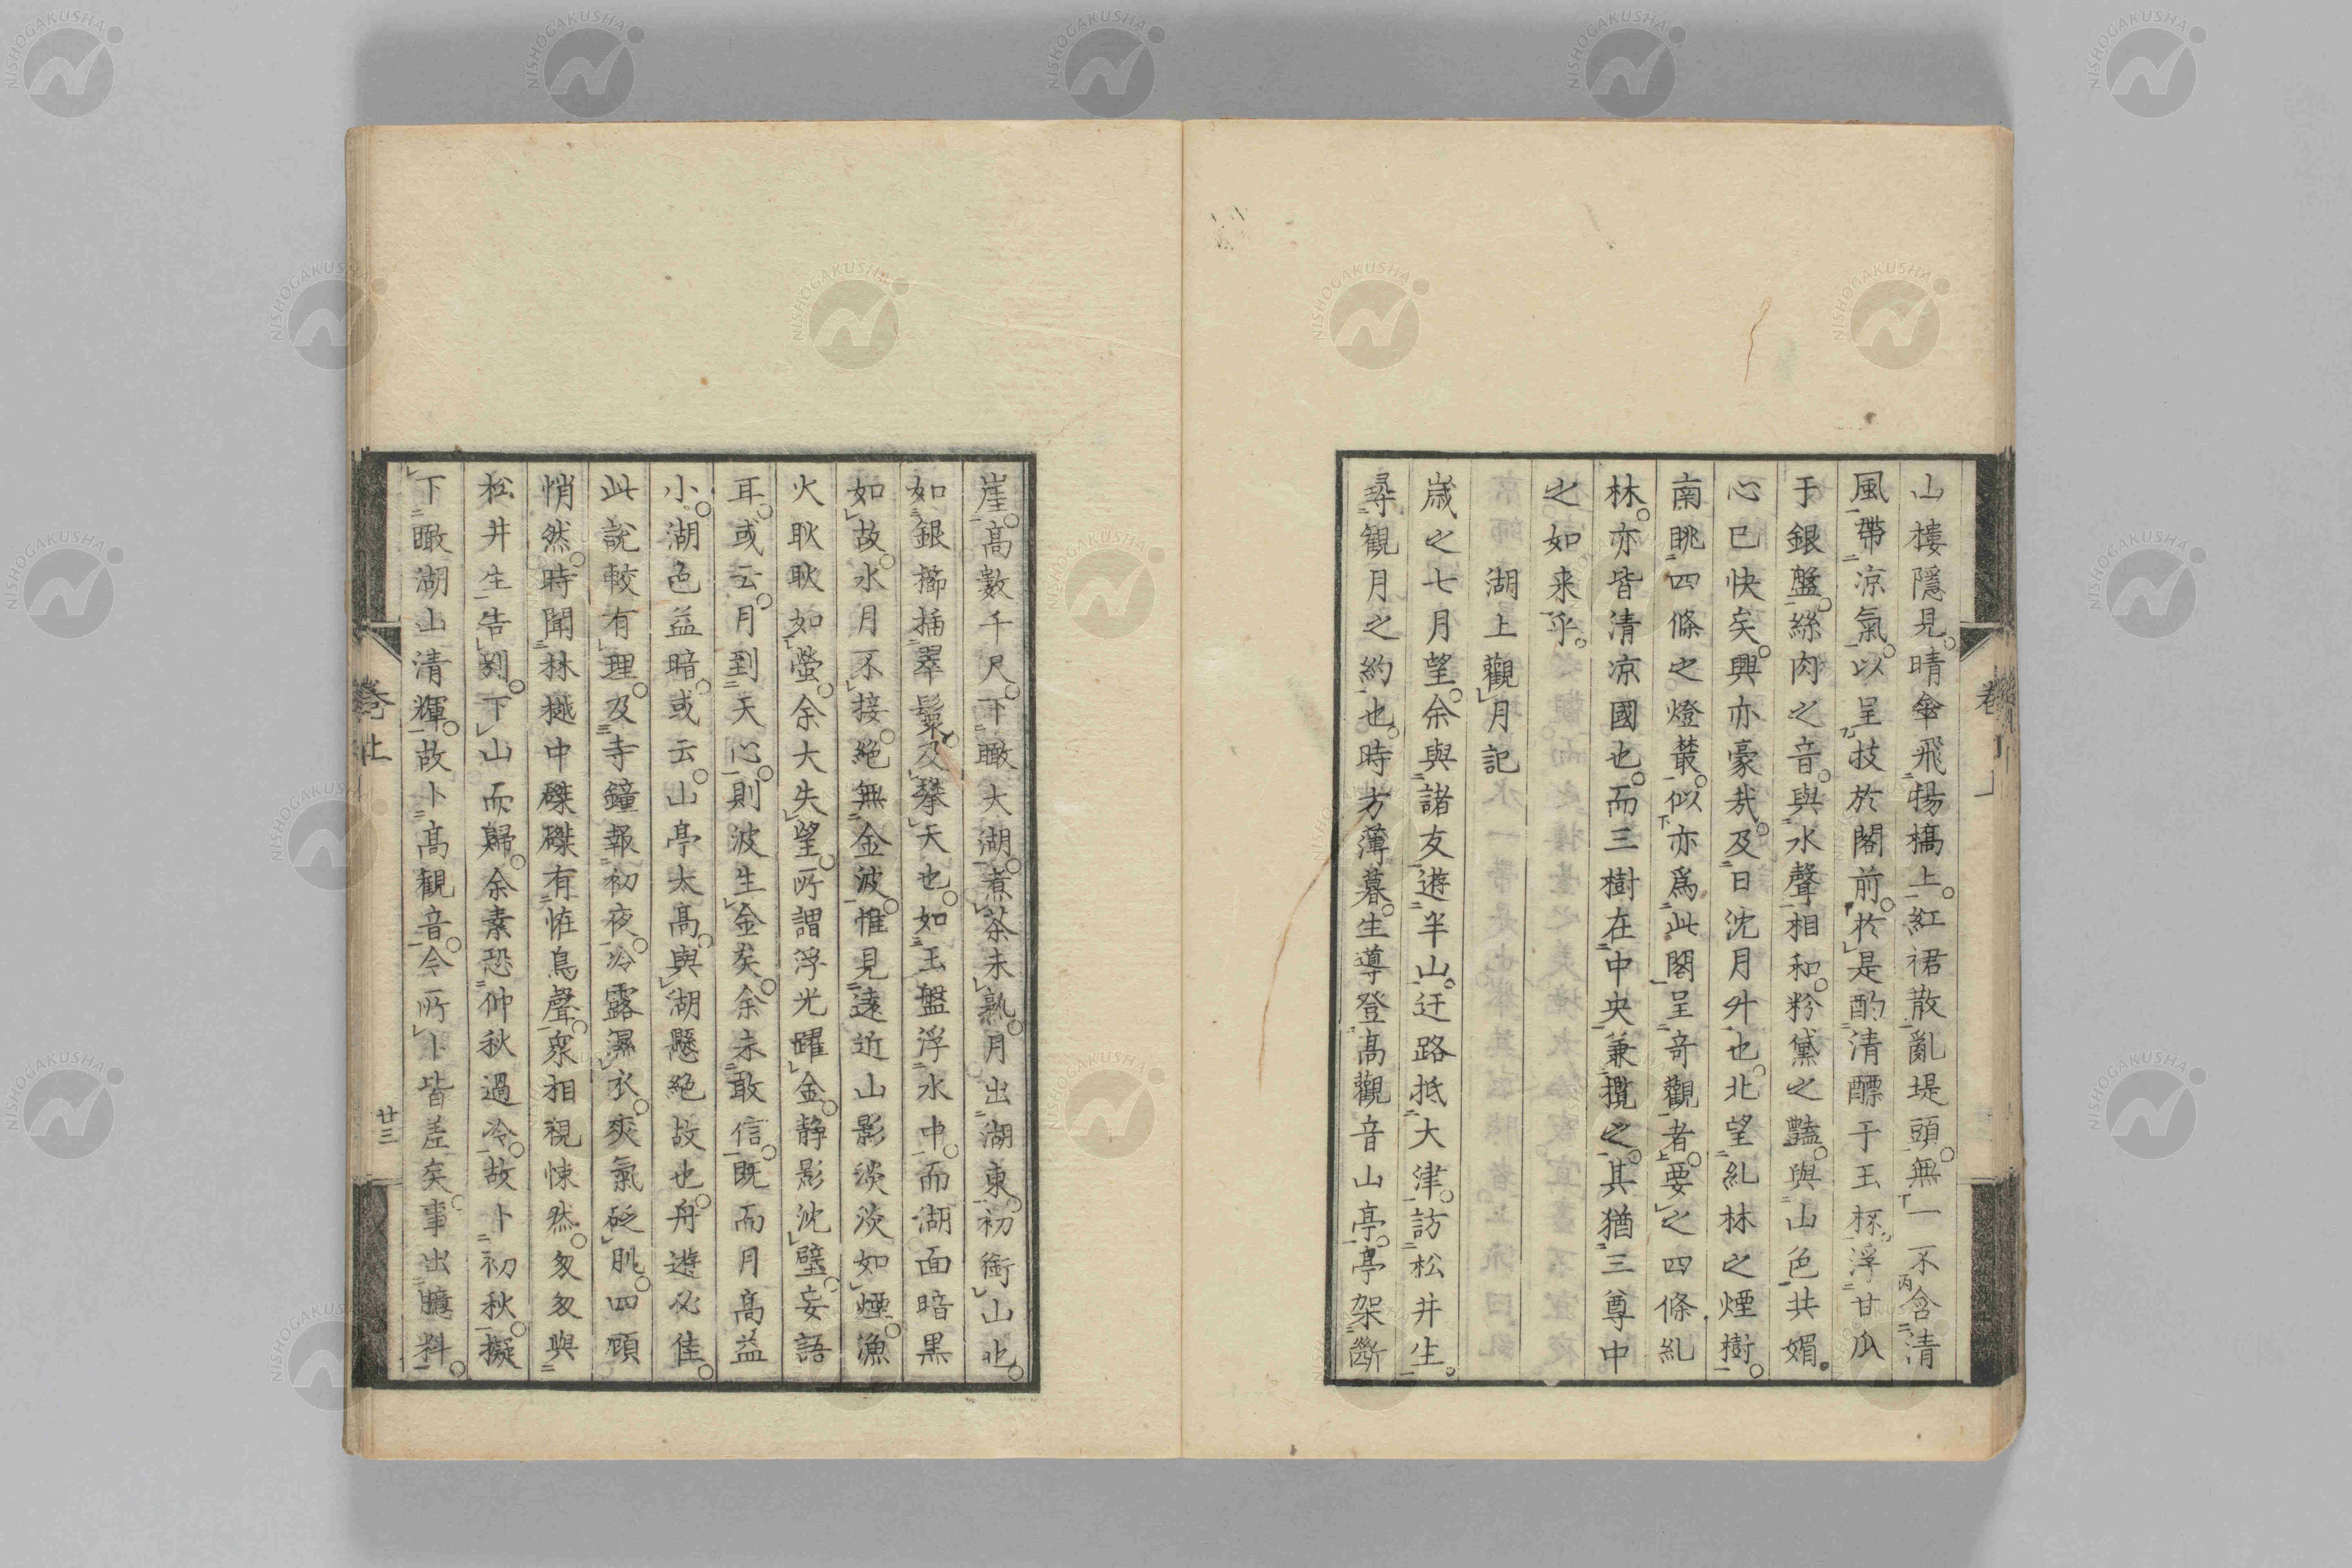 山樓隱見。晴傘飛揚橋上。紅裙散亂堤頭。無一不含清
風帶涼氣。以呈技於閣前。於是酌清醥于玉杯。浮甘瓜
于銀盤。絲肉之音。與水聲相和。粉黛之豔。與山色共媚。
心已快矣。興亦豪哉。及日沈月升也。北望糺林之煙樹。
南眺四條之燈叢。似亦爲此閣呈奇觀者。要之四條糺
林。亦皆清涼國也。而三樹在中央兼攬之。其猶三尊中
之如来乎。
湖上觀月記
歲之七月望。余與諸友遊半山。迂路抵大津。訪松井生。
尋觀月之約也。時方薄暮。生導登高觀音山亭。亭架斷
崖。高數千尺。下瞰大湖。煮茶未熟。月出湖東。初銜山也。
如銀櫛插翠鬟。及攀天也。如玉盤浮水中。而湖面暗黑
如故。水月不接。絕無金波。惟見遠近山影淡淡如煙。漁
火耿耿如螢。余大失望。所謂浮光躍金。静影沈璧。妄語
耳。或云。月到天心。則波生金矣。余未敢信。既而月高益
小。湖色益暗。或云。山亭太高。與湖懸絕故也。舟遊必佳。
此說較有理。及寺鐘報初夜。冷露濕衣。爽氣砭肌。四顧
悄然。時聞林樾中磔磔有恠鳥聲。衆相視悚然。匆匆與
松井生告別。下山而歸。余素恐仲秋過冷。故卜初秋。擬
下瞰湖山清輝。故卜高観音。今所卜皆差矣。事出臆料。
卷上
廿三